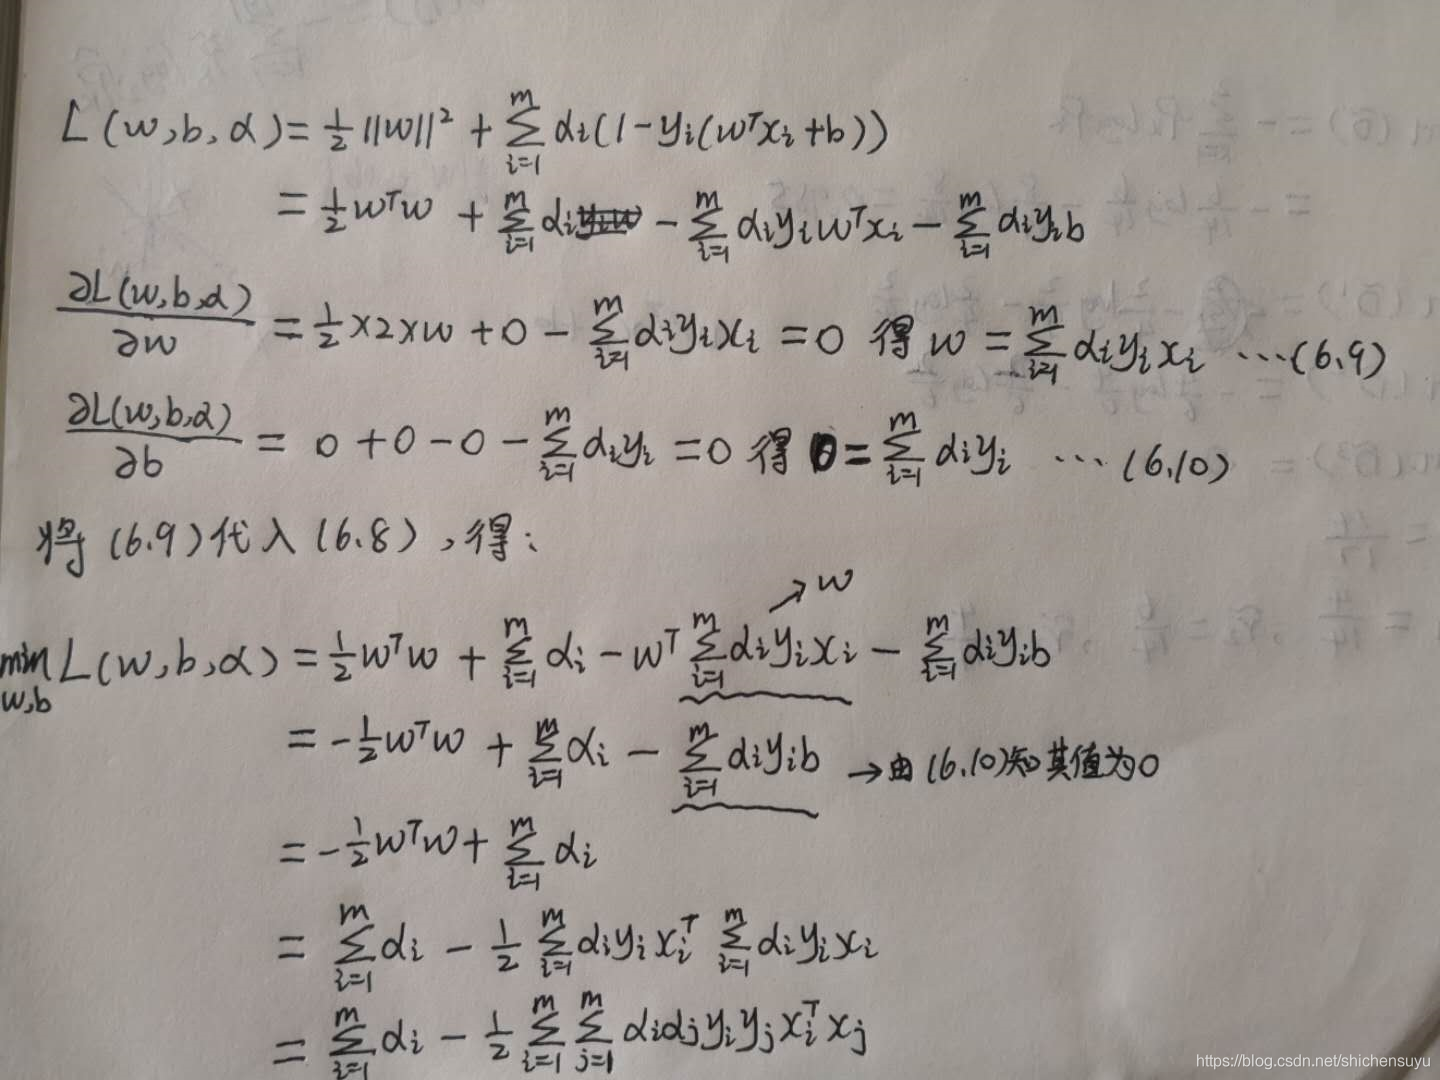 L(w,b,α)=½||w||²+∑_{i=1}^{m}α_i(1-y_i(w^Tx_i+b))
=½w^Tw+∑_{i=1}^{m}α_i-∑_{i=1}^{m}α_iy_iw^Tx_i-∑_{i=1}^{m}α_iy_ib
∂L(w,b,α)/∂w=½×2×w+0-∑_{i=1}^{m}α_iy_ix_i=0 得 w=∑_{i=1}^{m}α_iy_ix_i ···(6.9)
∂L(w,b,α)/∂b=0+0-0-∑_{i=1}^{m}α_iy_i=0 得 0=∑_{i=1}^{m}α_iy_i ···(6.10)
将(6.9)代入(6.8),得:
→w
min_{w,b}L(w,b,α)=½w^Tw+∑_{i=1}^{m}α_i-w^T∑_{i=1}^{m}α_iy_ix_i-∑_{i=1}^{m}α_iy_ib
=-½w^Tw+∑_{i=1}^{m}α_i-∑_{i=1}^{m}α_iy_ib →由(6.10)知其值为0
=-½w^Tw+∑_{i=1}^{m}α_i
=∑_{i=1}^{m}α_i-½∑_{i=1}^{m}α_iy_ix_i^T∑_{i=1}^{m}α_iy_ix_i
=∑_{i=1}^{m}α_i-½∑_{i=1}^{m}∑_{j=1}^{m}α_iα_jy_iy_jx_i^Tx_j
https://blog.csdn.net/shichensuyu